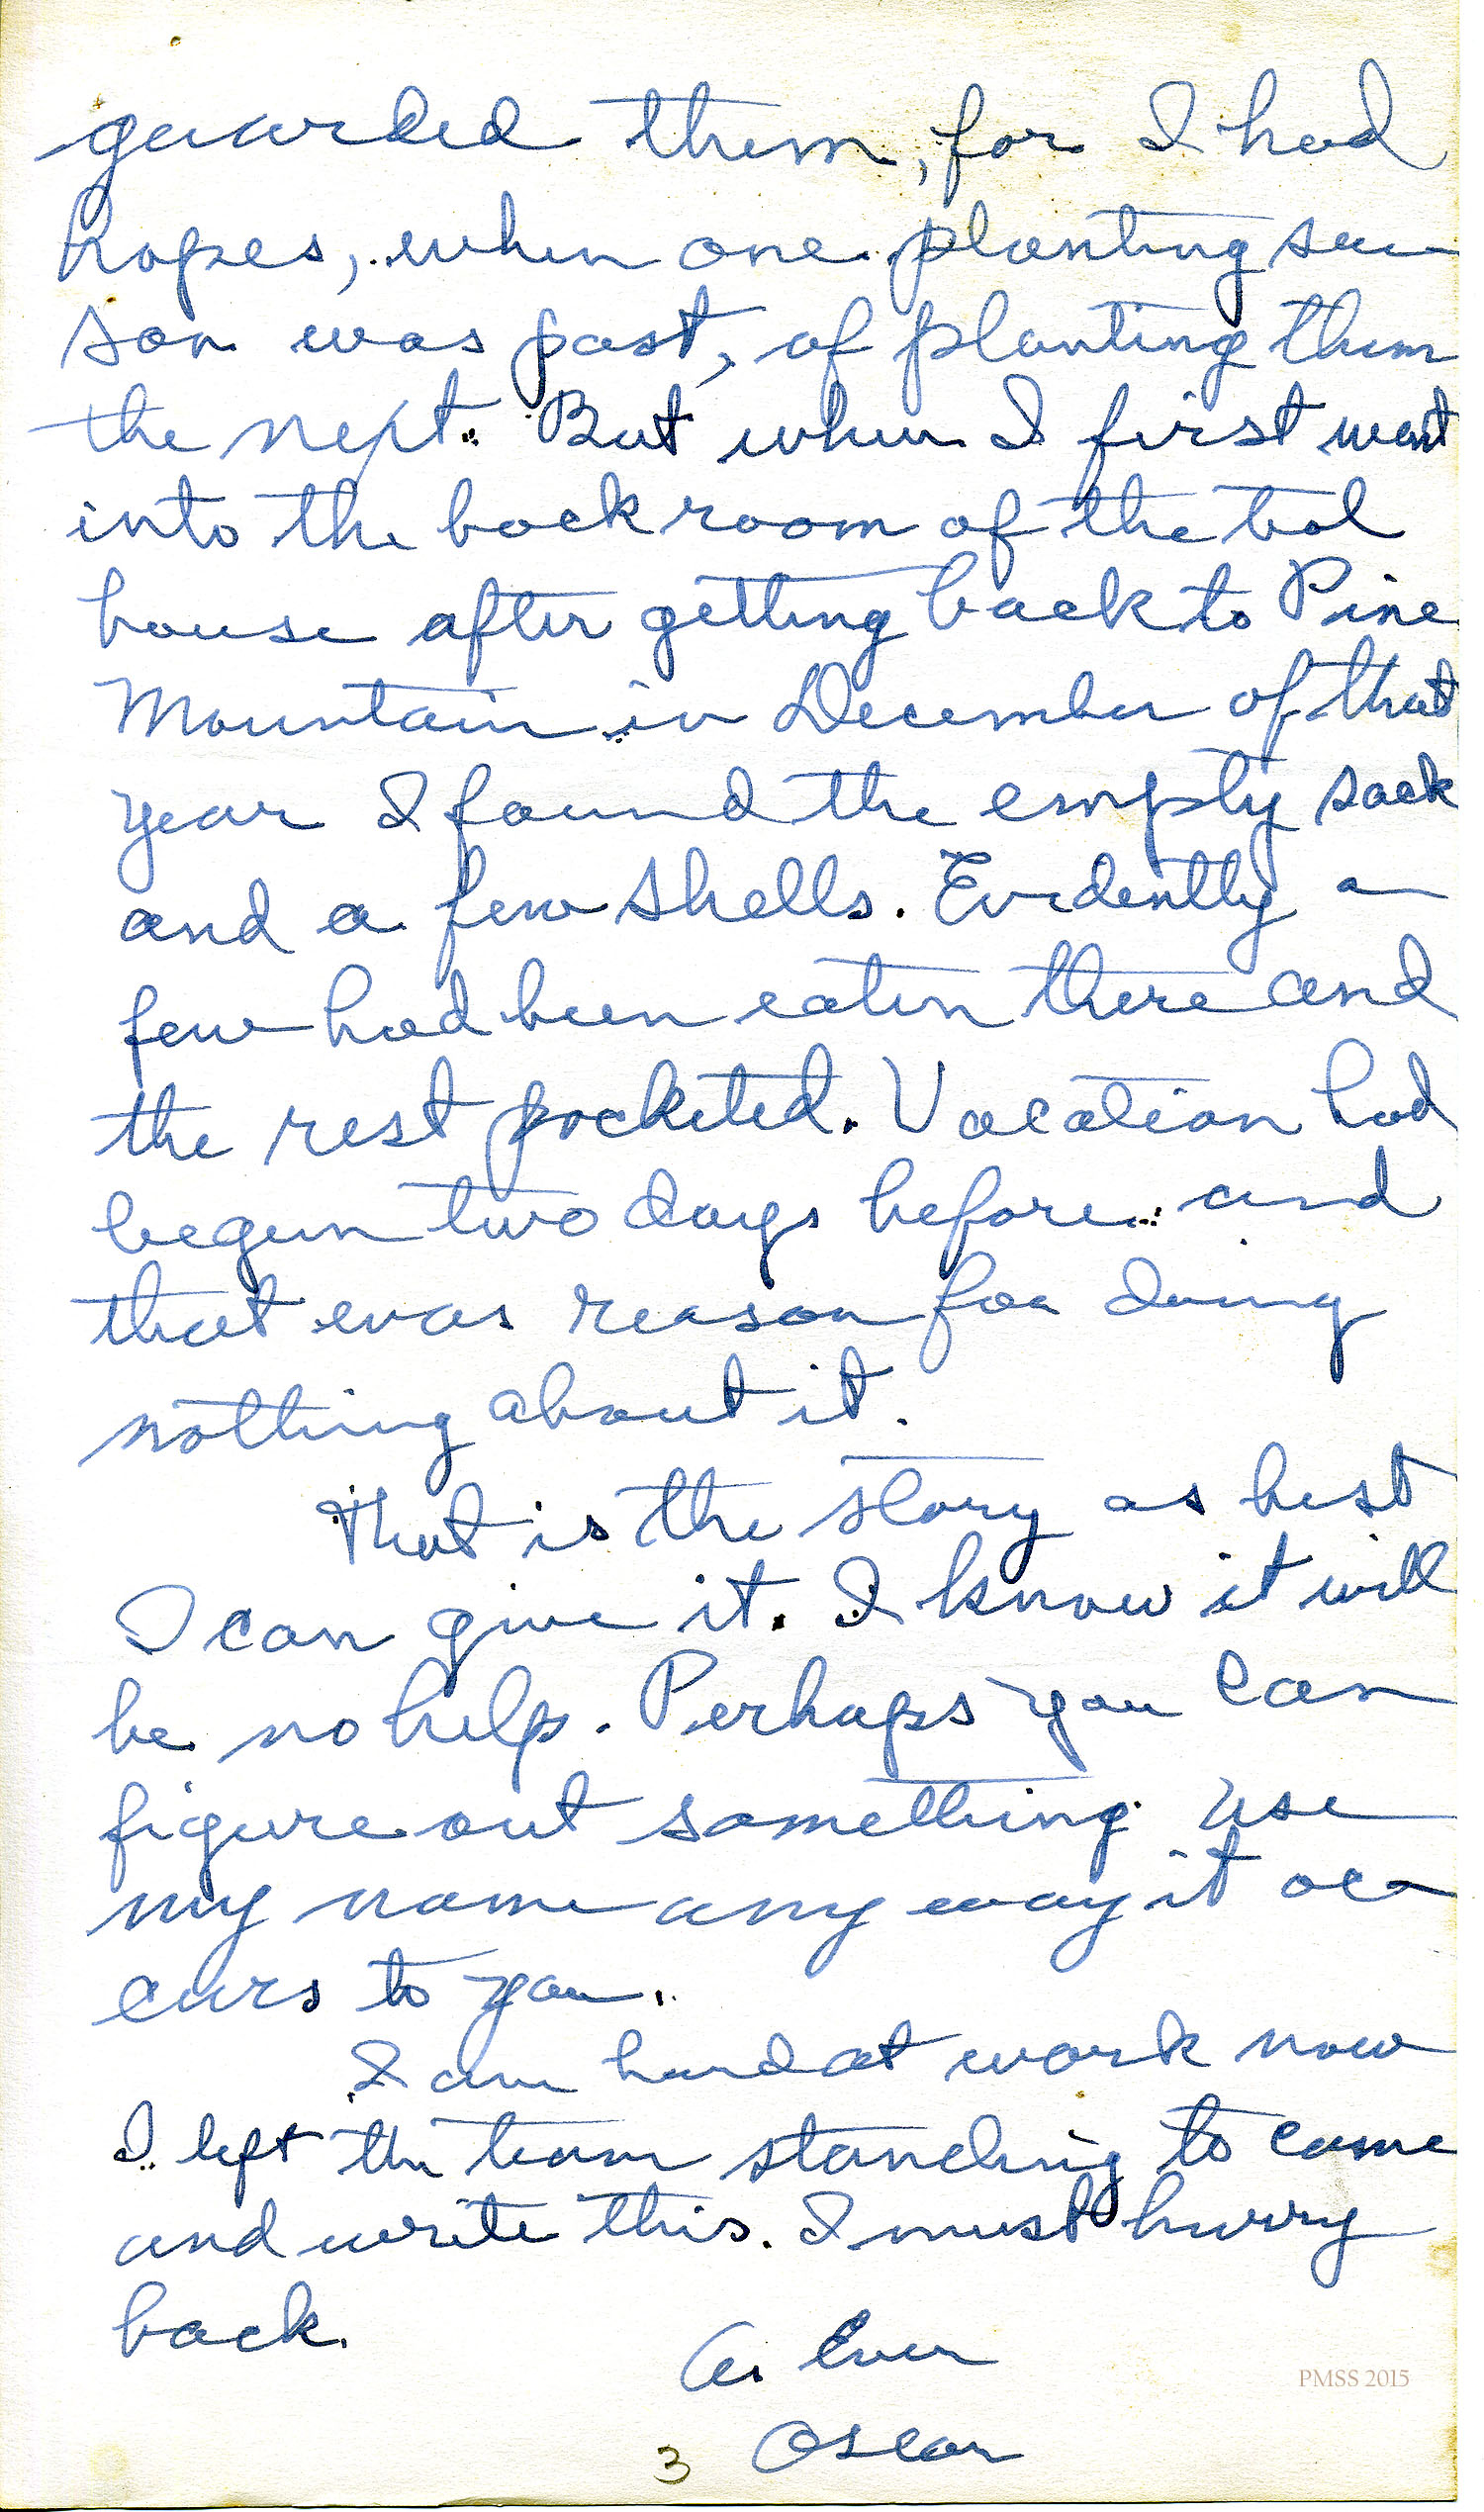 guarded them, for I had
hopes, when one planting sea
son was past, of planting them
the next. But when I first went
into the back room of the tool
house after getting back to Pine
Mountain in December of that
year I found the empty sack
and a few shells. Evidently a
few had been eaten there and
the rest pocketed. Vacation had
begun two days before and
that was reason for doing
nothing about it.
That is the story as best
I can give it. I know it will
be no help. Perhaps you can
figure out something. Use
my name any way it oc
curs to you.
I am hard at work now
I left the team standing to come
and write this. I must hurry
back.
As Ever
Oscar
3
PMSS 2015